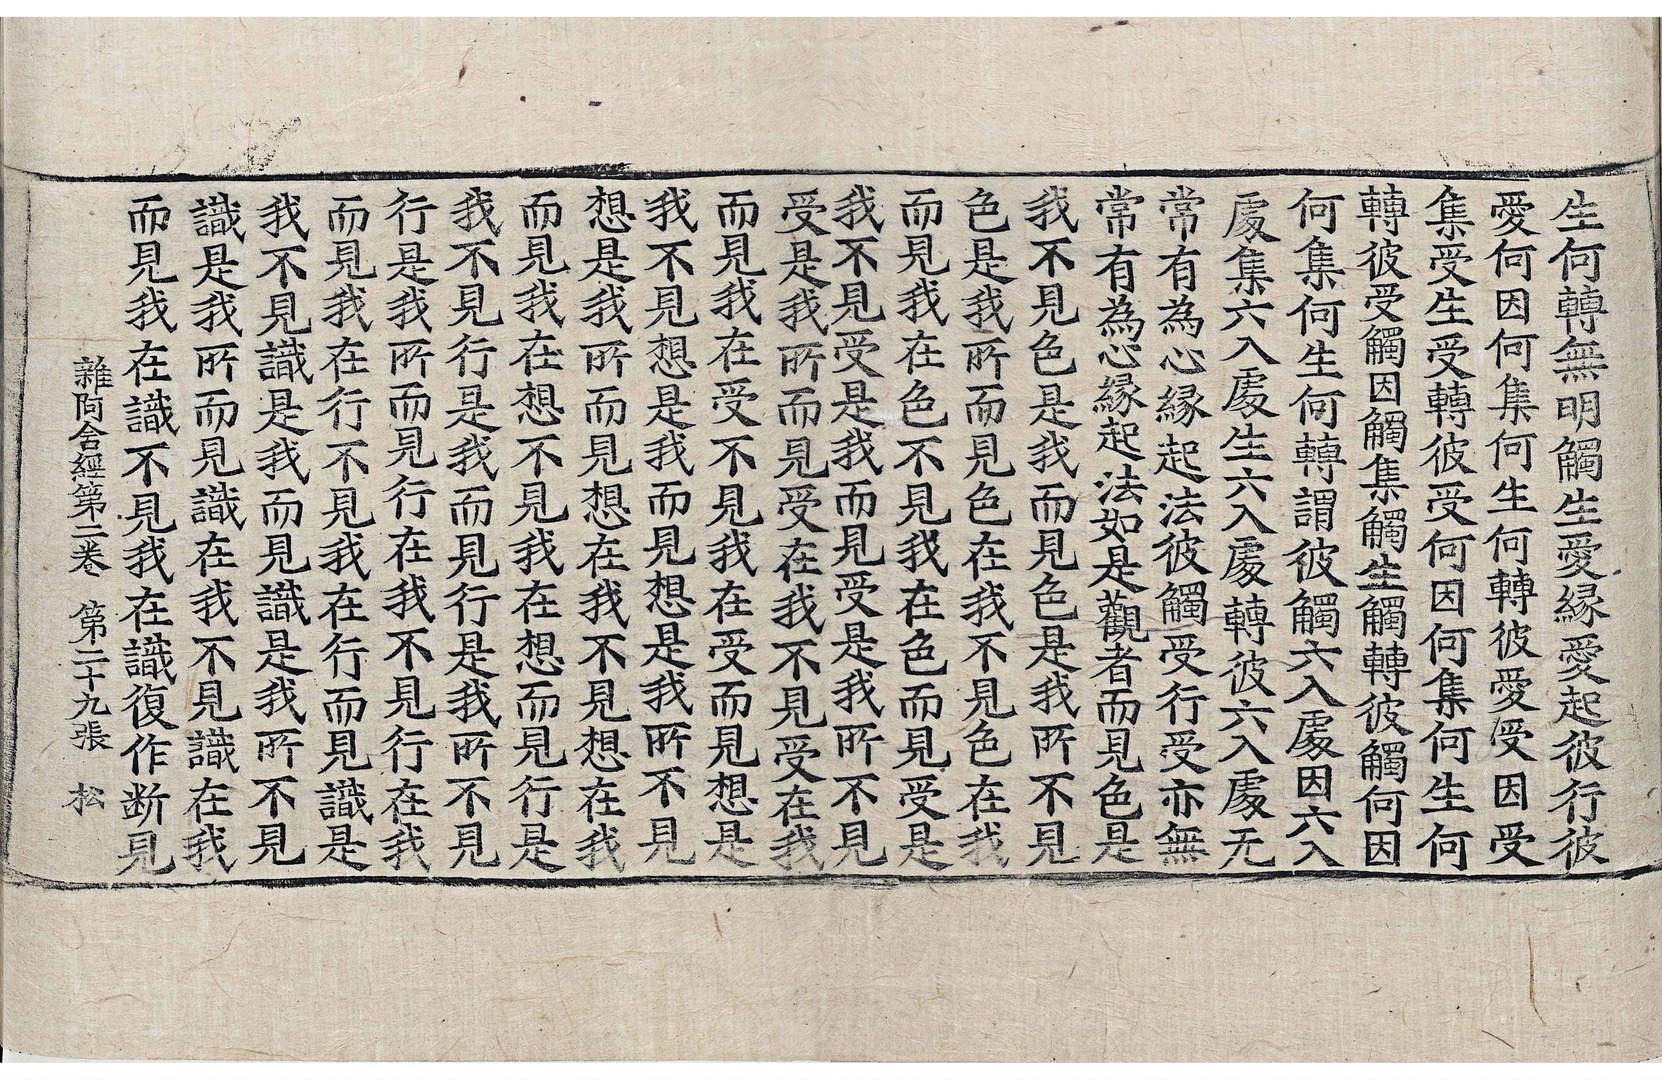 生何轉無明觸生愛緣愛起彼行彼
愛何因何集何生何轉彼愛受因受
集受生受轉彼受何因何集何生何
轉彼受觸因觸集觸生觸轉彼觸何因
何集何生何轉謂彼觸六入處因六入
處集六入處生六入處轉彼六入處无
常有為心緣起法彼觸受行受亦無
常有為心緣起法如是觀者而見色是
我不見色是我而見色是我所不見
色是我所而見色在我不見色在我
而見我在色不見我在色而見受是
我不見受是我而見受是我所不見
受是我所而見受在我不見受在我
而見我在受不見我在受而見想是
我不見想是我而見想是我所不見
想是我所而見想在我不見想在我
而見我在想不見我在想而見行是
我不見行是我而見行是我所不見
行是我所而見行在我不見行在我
而見我在行不見我在行而見識是
我不見識是我而見識是我所不見
識是我所而見識在我不見識在我
而見我在識不見我在識復作断見
雜阿含經第二卷 第二十九張 松